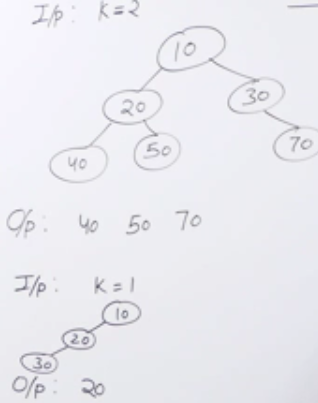 I/p: K=2
10
20 30
40 50 70
O/p: 40 50 70
I/p: K=1
10
20
30
O/p: 20